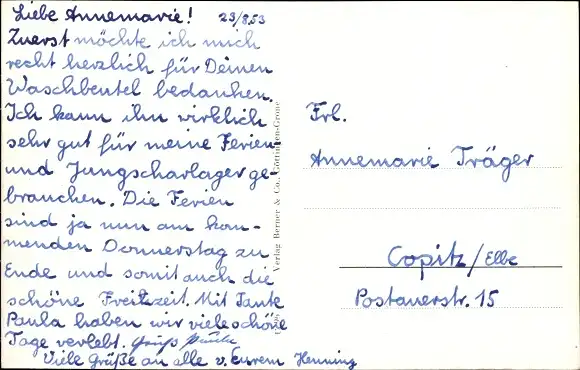 Liebe Annemarie! 23/8.53
Zuerst möchte ich mich
recht herzlich für Deinen
Waschbeutel bedanken.
Ich kann ihn wirklich
sehr gut für meine Ferien
und Jungscharlager ge-
brauchen. Die Ferien
sind ja nun am kom-
menden Donnerstag zu
Ende und somit auch die
schöne Freitzeit. Mit Tante
Paula haben wir viele schöne
Tage verlebt. Gruß Paula
Viele Grüße an alle v. Eurem Henning
Verlag Berner & Co., Göttingen-Grone
Frl.
Annemarie Träger
Copitz/Elbe
Postauerstr. 15